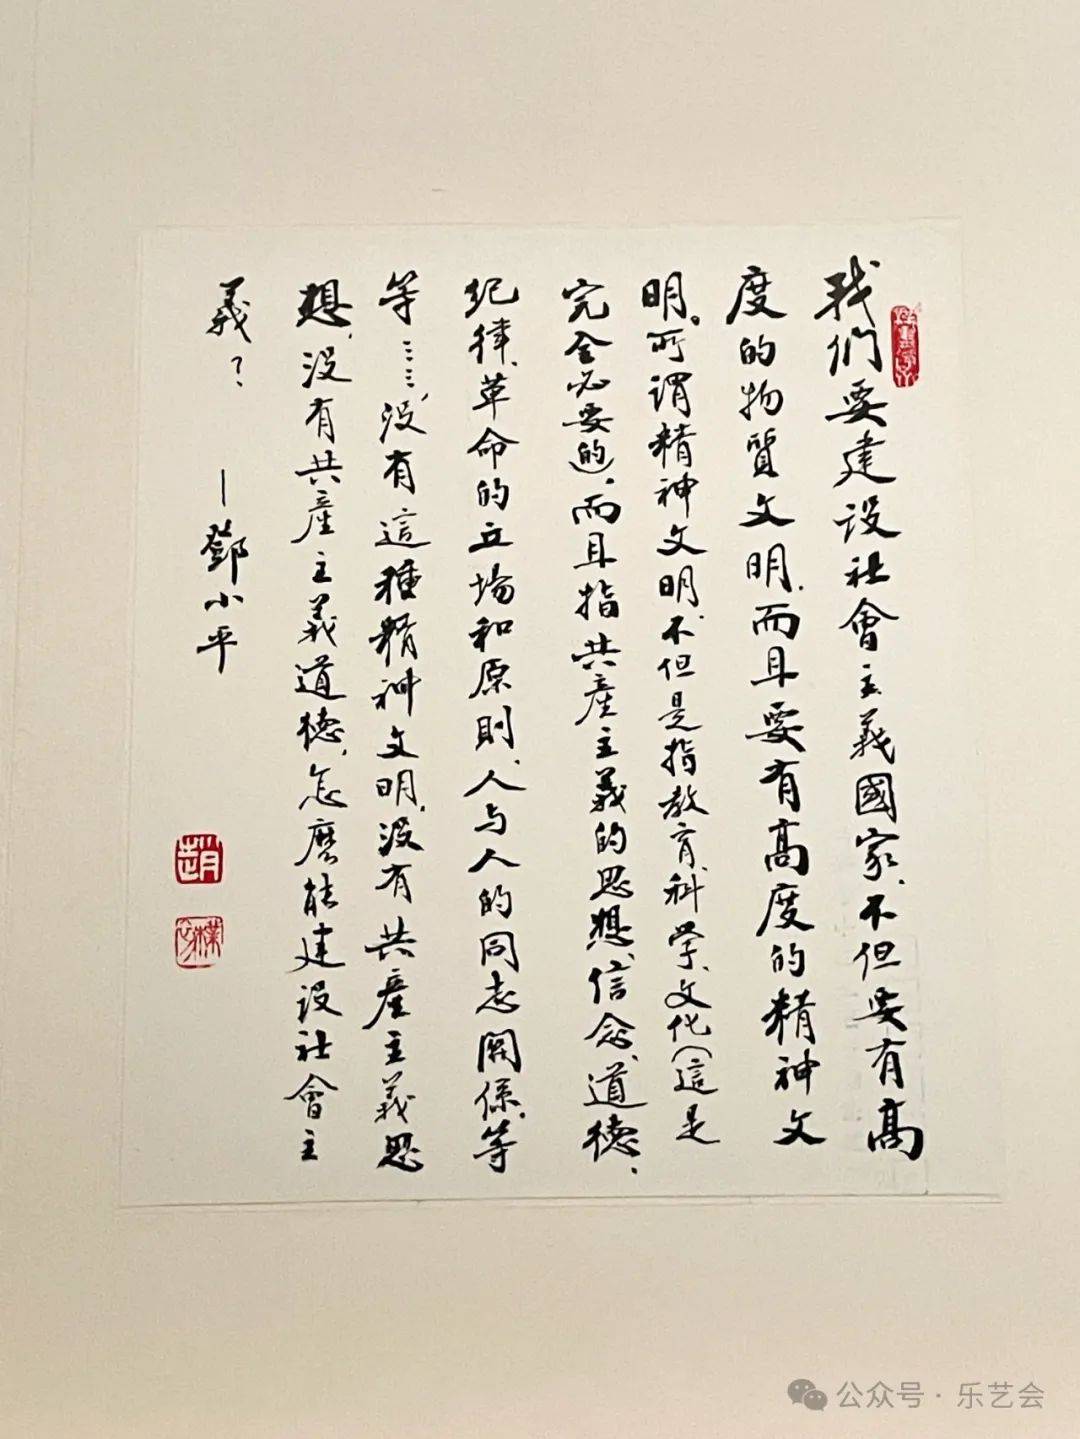 我们要建设社會主義國家、不但要有高
度的物質文明、而且要有高度的精神文
明。所谓精神文明、不但是指教育、科学、文化（這是
完全必要的）、而且指共產主義的思想、信念、道德、
纪律、革命的立場和原則、人与人的同志関係、等
等……、没有這種精神文明、没有共產主義思
想、没有共產主義道德、怎麽能建设社會主
義？
—鄧小平
趙
公众号·乐艺会